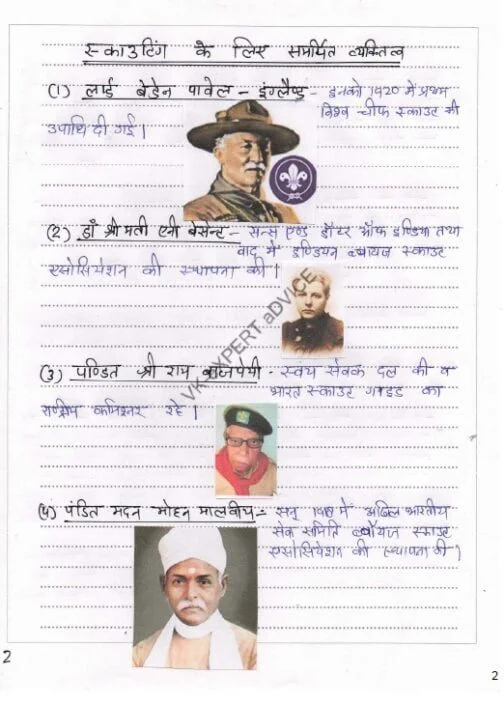 स्काउटिंग के लिए समर्पित व्यक्तित्व
(1) लार्ड बेडेन पावेल - इंग्लैण्ड - इनको 1920 में प्रथम
विश्व चीफ स्काउट की
उपाधि दी गई।
(2) डॉ श्रीमती एनी बेसेन्ट - सन्स एण्ड डॉटर ऑफ इण्डिया तथा
बाद में इण्डियन ब्वायज स्काउट
एसोसियेशन की स्थापना की।
(3) पण्डित श्री राम बाजपेयी - स्वयं सेवक दल की व
भारत स्काउट गाइड का
राष्ट्रीय कमिश्नर रहे।
(4) पंडित मदन मोहन मालवीय - सन् में अखिल भारतीय
सेवा समिति ब्वॉयज स्काउट
एसोसियेशन की स्थापना की।
VK EXPERT aDVICE
2
2